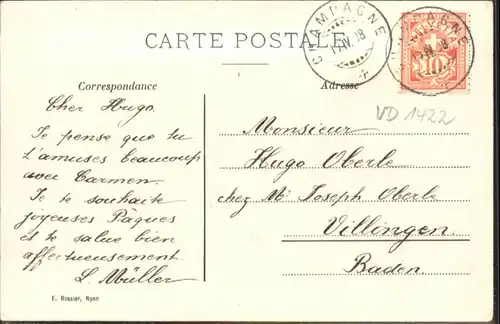 CARTE POSTALE
CHAMPAGNE
IV. 08
CHAMPAGNE
10
Correspondance
Adresse
VD 1422
Cher Hugo.
Je pense que tu
t'amuses beaucoup
avec Carmen.
Je te souhaite
joyeuses Pâques
et te salue bien
affectueusement.
L. Müller
Monsieur
Hugo Oberle
chez Mr Joseph Oberle
Villingen.
Baden.
E. Rossier, Nyon